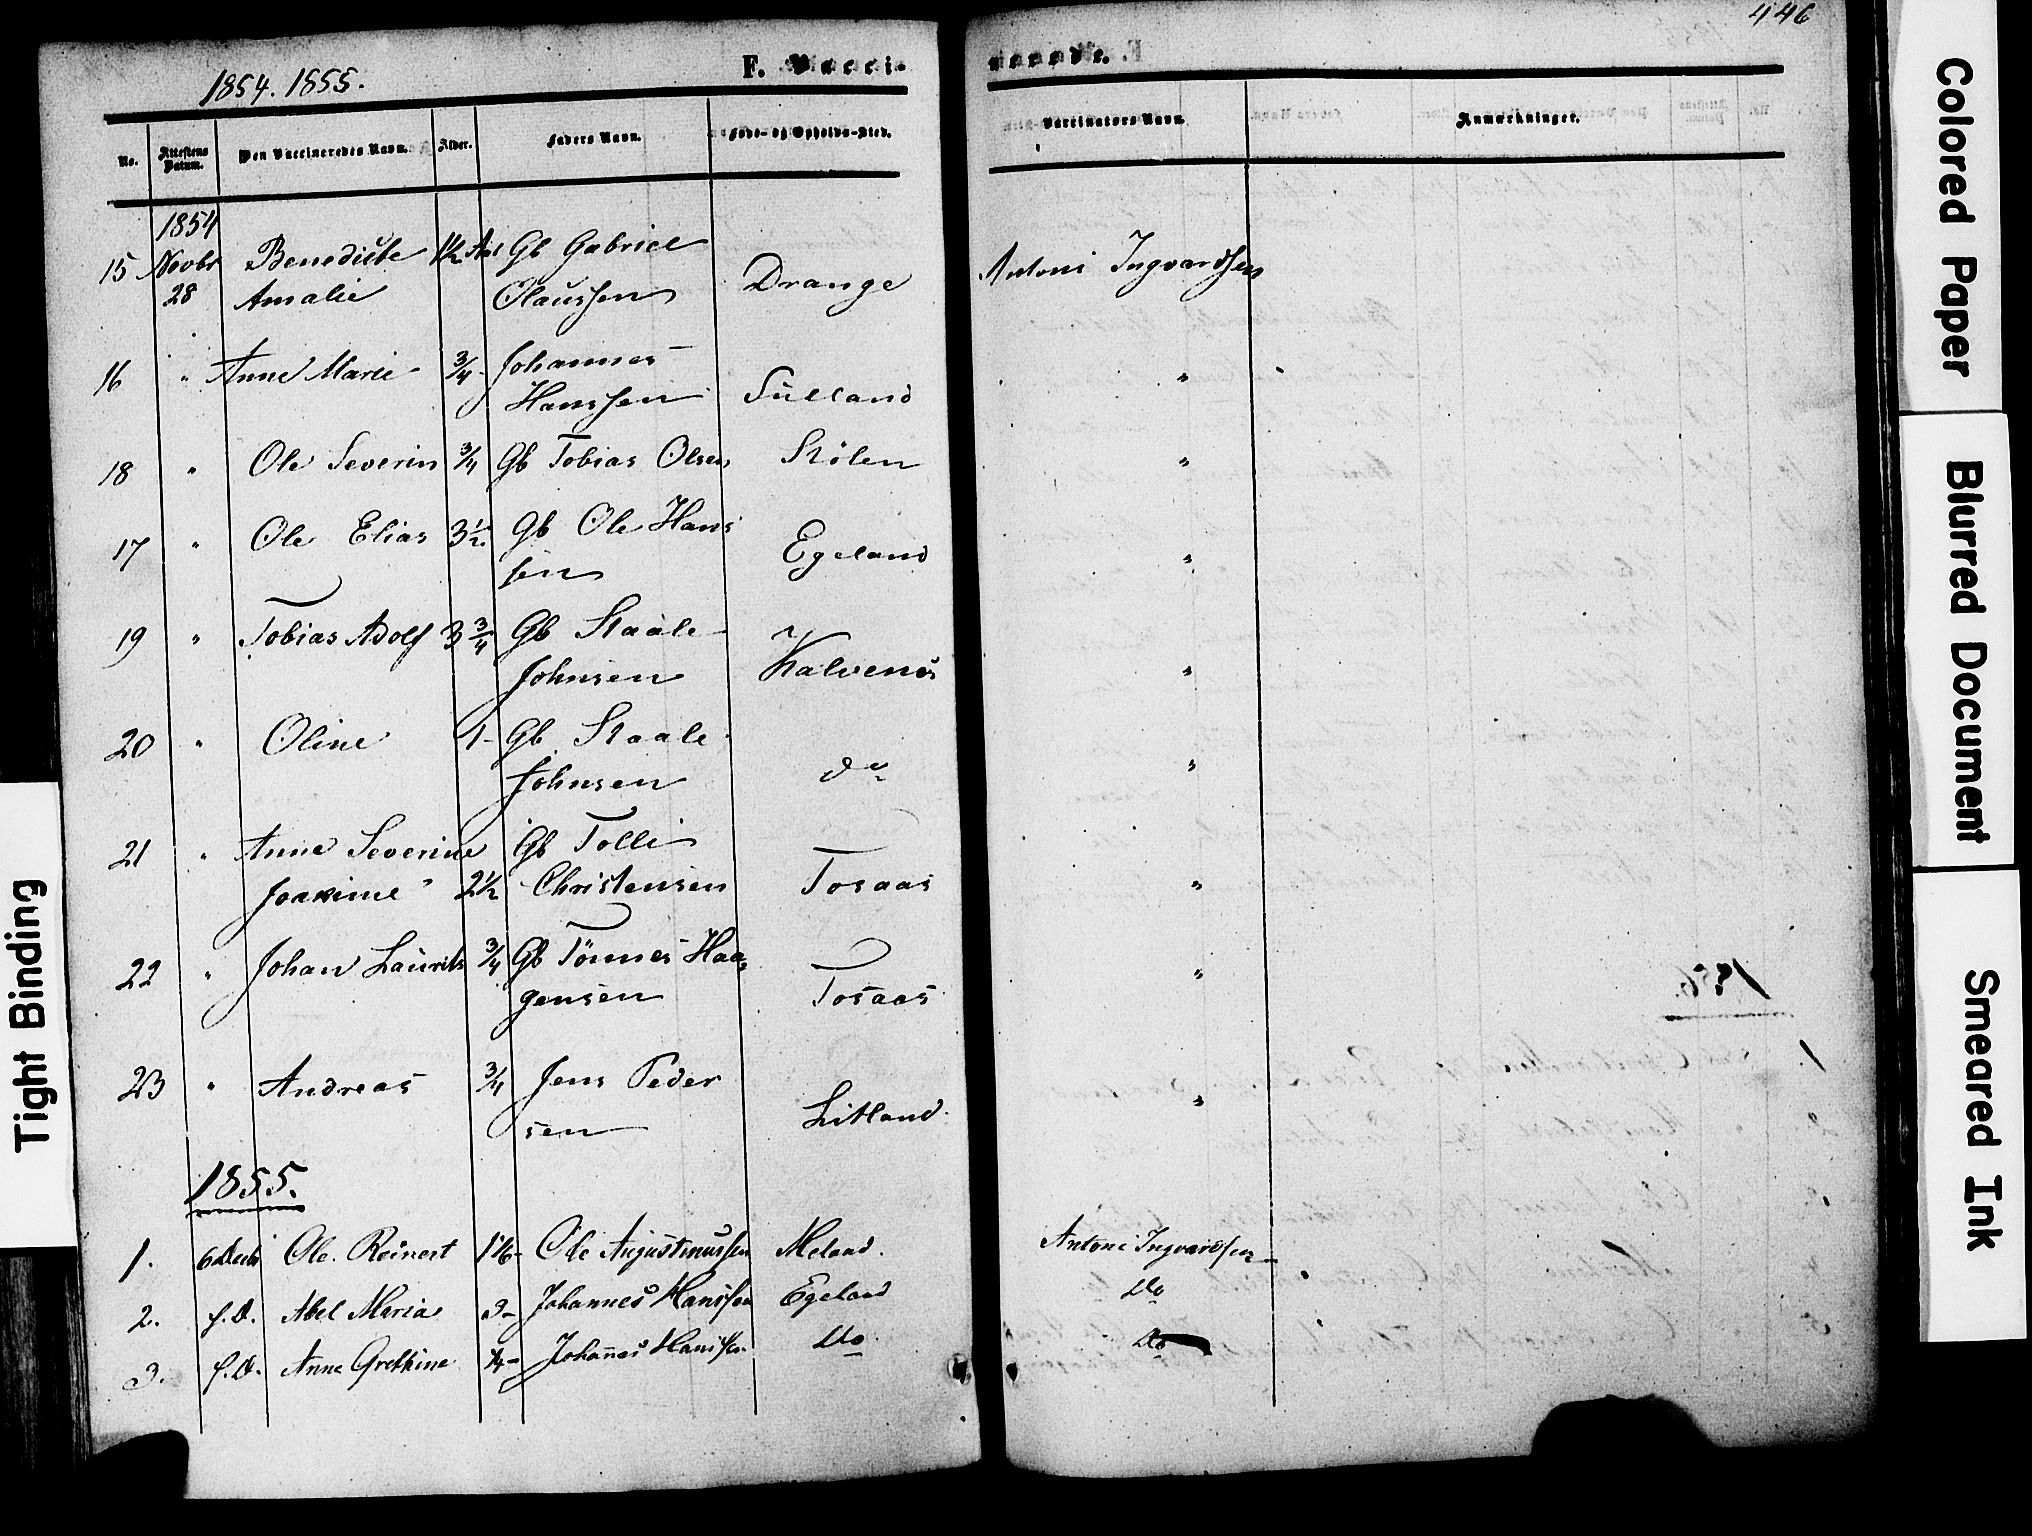 446
1854. 1855.
F. Vacci-
nerede.
No. Attestens Datum. Den Vaccineredes Navn. Alder. Faders Navn. Føde- og Opholds-Sted. Vaccinators Navn. Anmærkninger.
1854
15 Novbr Benedicte 1½ Aar Gb Gabriel
28 Amalie Claussen Drange Antoni Ingvardsen
16 " Anne Marie ¾- Johannes
Hanssen "
18 " Ole Severin ¾ Gb Tobias Olsen "
17 " Ole Elias 3½. Gb Ole Hans
sen Egeland "
19 " Tobias Adolf 3¾ Gb Staale
Johnsen Kalvenes "
20 " Oline 1- Gb Staale
Johnsen do "
21 " Anne Severine Gb Tolli
2½ Christensen Tosaas "
22 " Johan Laurits ¾ Gb Tønnes Haa-
gensen Tosaas "
23 " Andreas ¾ Jens Peder
sen Litland "
1855.
1. Ole Reinert Ole Augustinussen Meland. Antoni Ingvardsen
2. f.D. Abel Maria 3- Johannes Hanssen Egeland Do
3. f.D. Anne Grethine Johannes Hanssen Do Do
Tight Binding
Colored Paper
Blurred Document
Smeared Ink